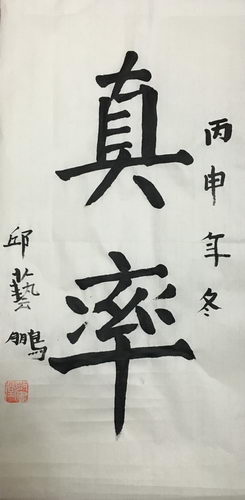 丙申年冬
真率
邱藝鵬